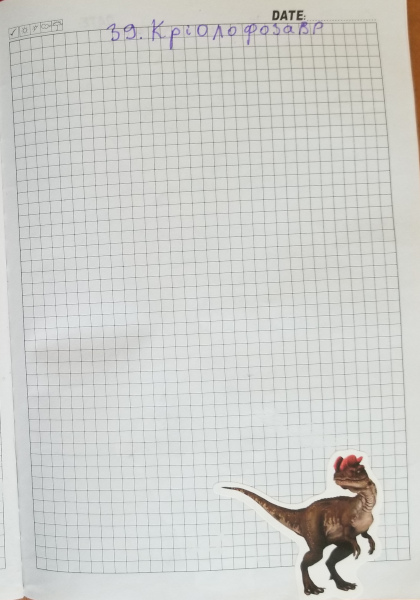 DATE:
39. Кріолофозавр